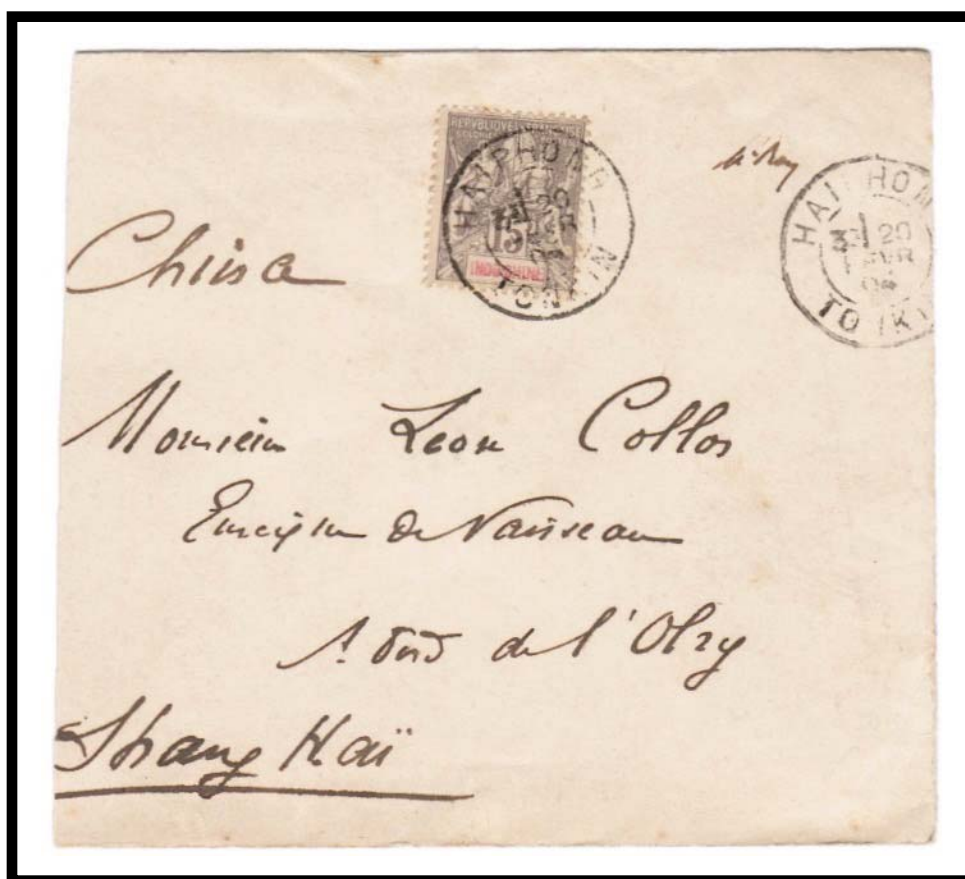 REPVBLIQVE FRANÇAISE
COLONIES
15
INDO-CHINE
HAIPHONG
20
TONKIN
HAIPHON
3E 20
FEVR
04
TONKI
China
Monsieur Leon Collos
Enseigne de Vaisseau
A bord de l'Olry
Shang Haï